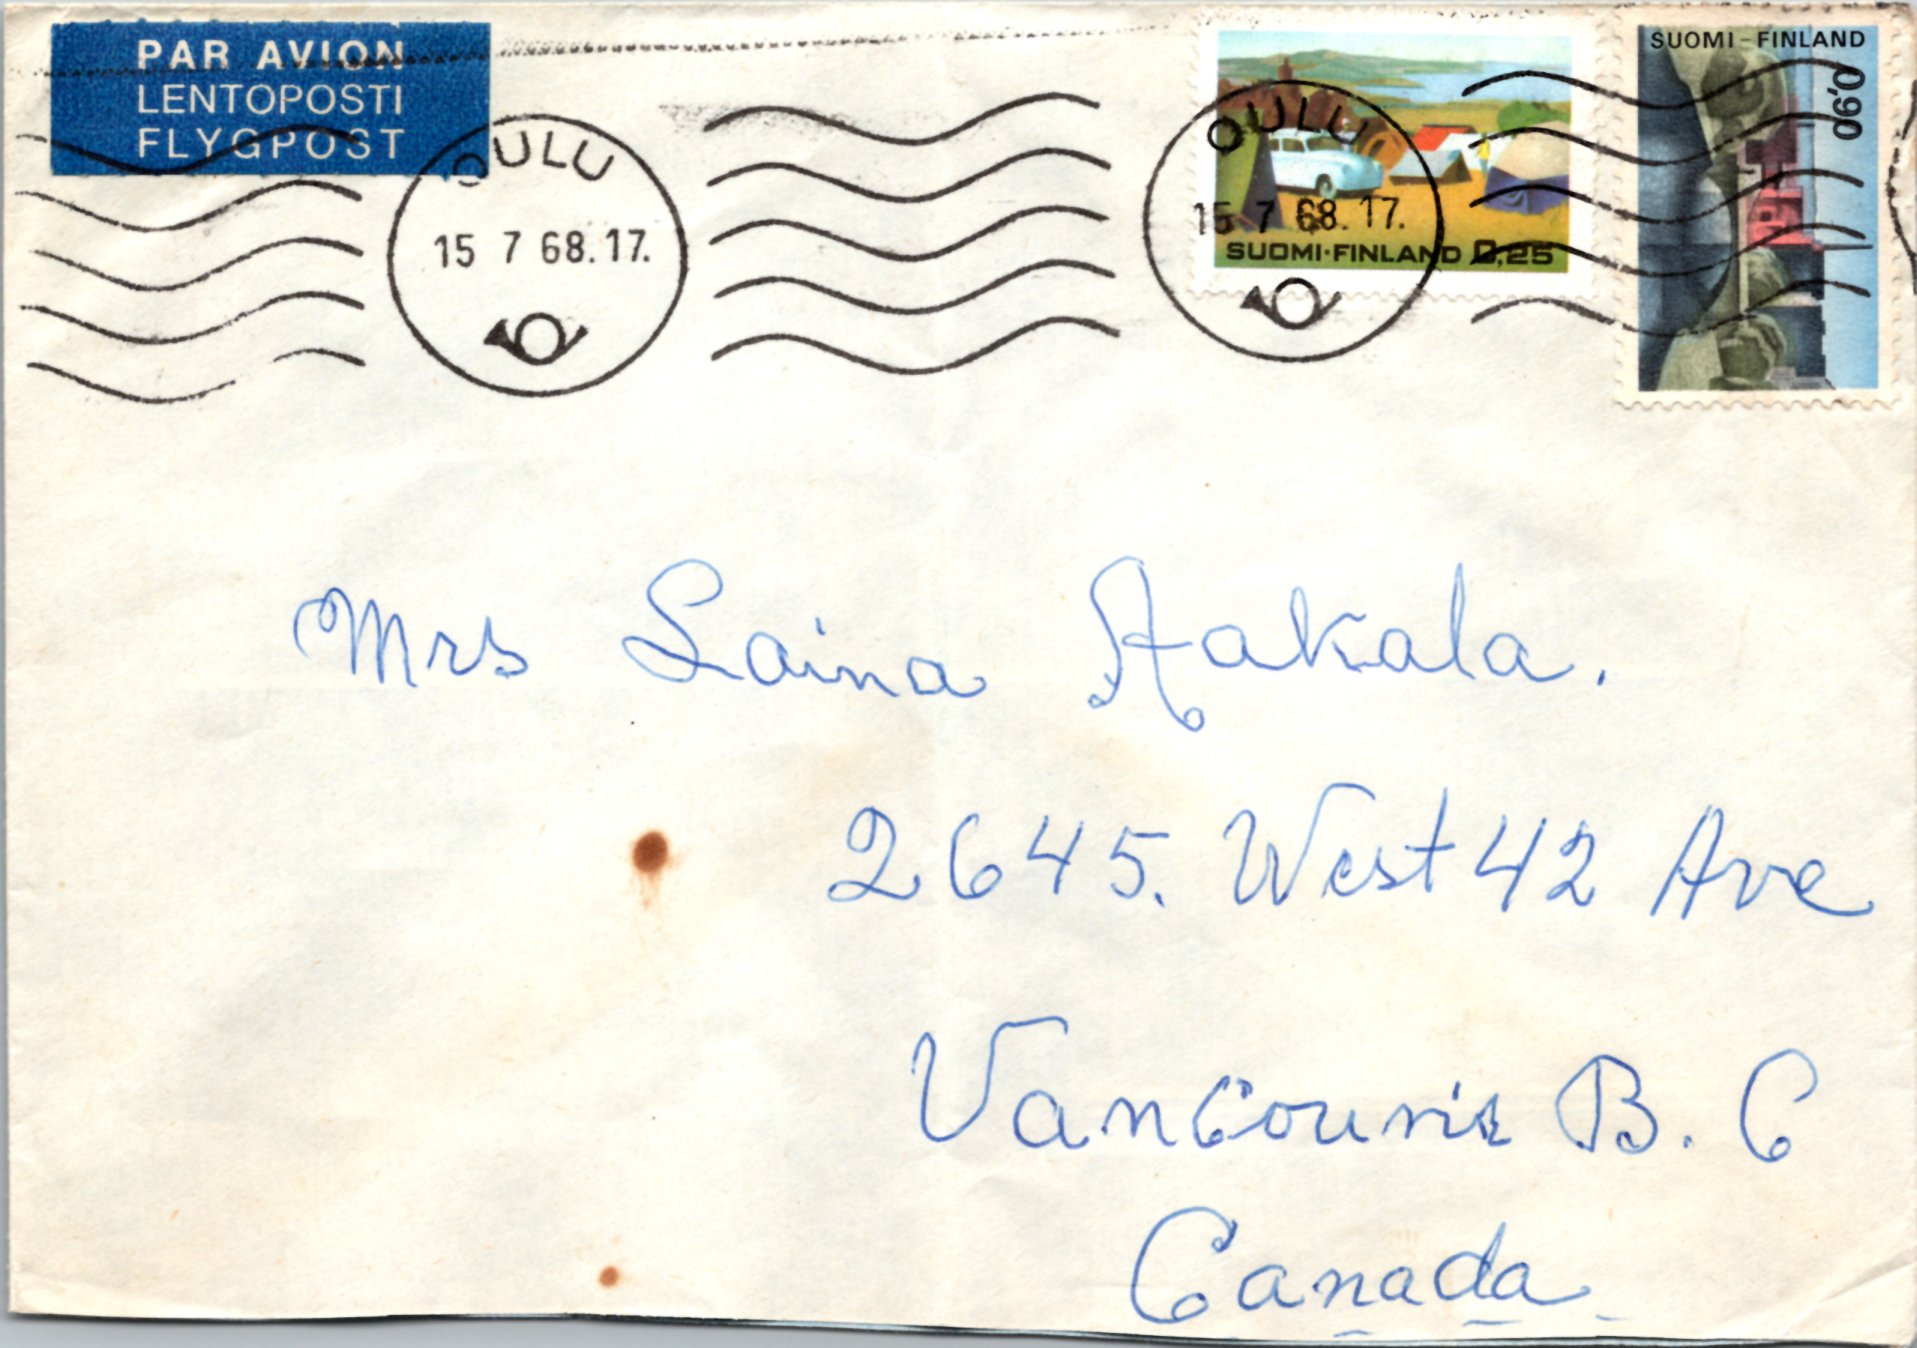 PAR AVION
LENTOPOSTI
FLYGPOST
OULU
15 7 68.17.
OULU
15 7 68.17.
SUOMI·FINLAND 0,25
SUOMI-FINLAND
0,90
Mrs Laina Aakala.
2645. West 42 Ave
Vancouver B. C
Canada